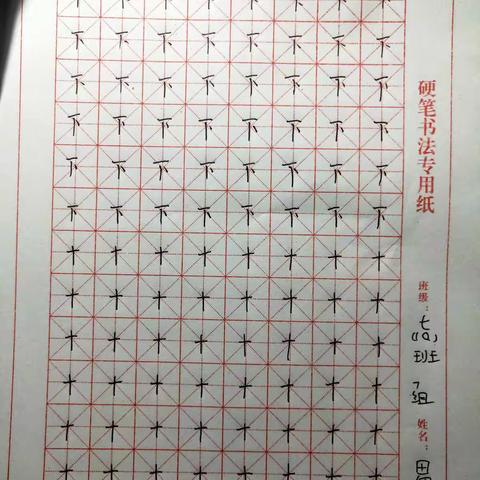 下 下 下 下 下 下 下 下
下 下 下 下 下 下 下 下
下 下 下 下 下 下 下 下
下 下 下 下 下 下 下 下
下 下 下 下 下 下 下 下
下 下 下 下 下 下 下 下
十 十 十 十 十 十 十 十
十 十 十 十 十 十 十 十
十 十 十 十 十 十 十 十
十 十 十 十 十 十 十 十
十 十 十 十 十 十 十 十
十 十 十 十 十 十 十 十
硬笔书法专用纸
班级：七 班 7组 姓名：